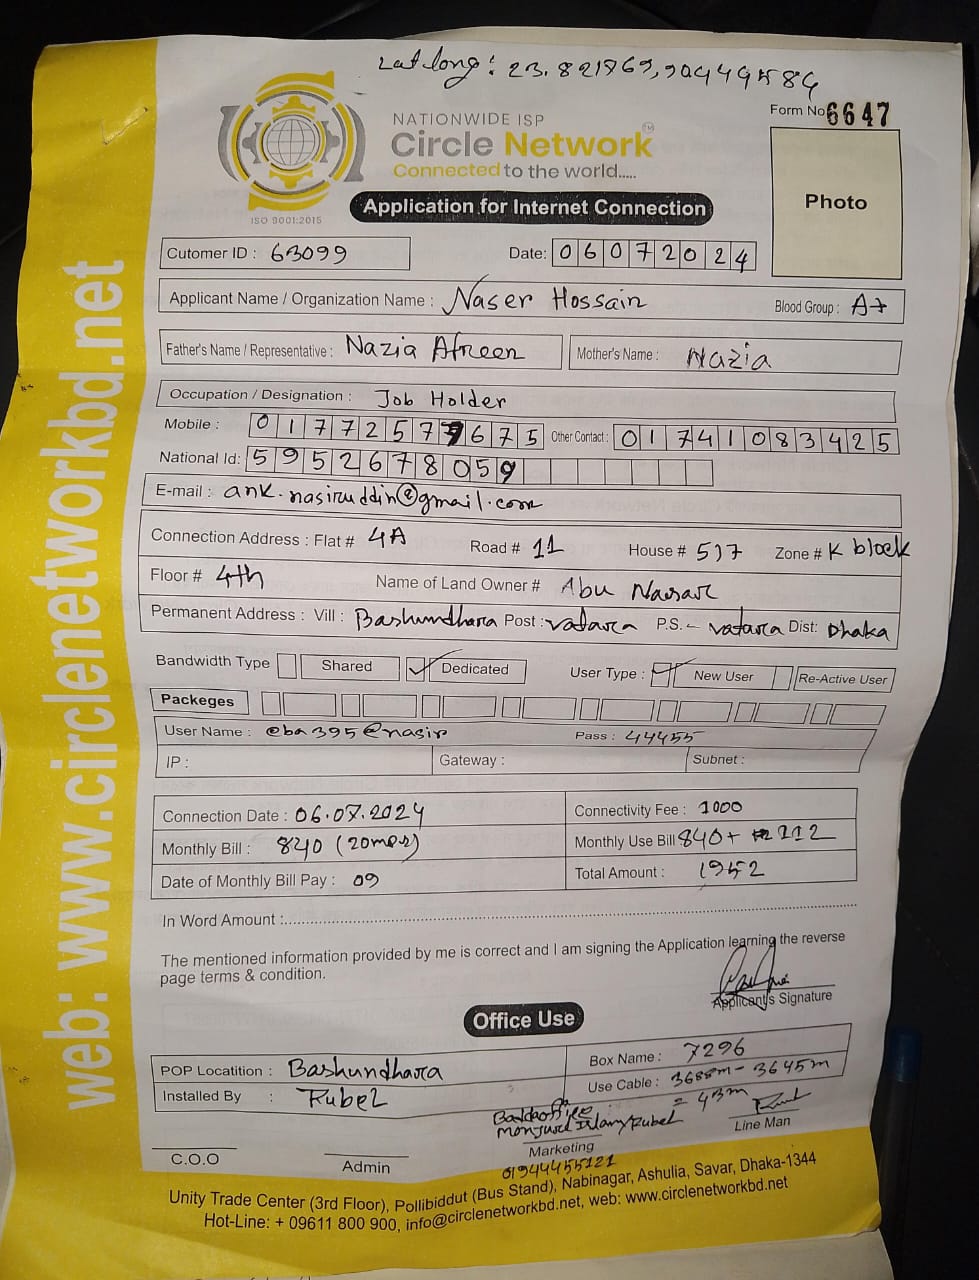 Lat long: 23.821769, 90449584
NATIONWIDE ISP
Circle Network TM
Connected to the world.....
ISO 9001:2015
Form No 6647
Photo
Application for Internet Connection
Cutomer ID : 63099 Date: 06072024
Applicant Name / Organization Name : Naser Hossain Blood Group : A+
Father's Name / Representative : Nazia Afreen Mother's Name : Nazia
Occupation / Designation : Job Holder
Mobile : 01772577675 Other Contact : 01741083425
National Id: 5952678059
E-mail : ank.nasiruddin@gmail.com
Connection Address : Flat # 4A Road # 11 House # 517 Zone # K block
Floor # 4th Name of Land Owner # Abu Nasar
Permanent Address : Vill : Bashundhara Post : vatara P.S.- vatara Dist: Dhaka
Bandwidth Type Shared Dedicated User Type : New User Re-Active User
Packeges
User Name : eba395@nasir Pass : 44455
IP : Gateway : Subnet :
Connection Date : 06.07.2024 Connectivity Fee : 1000
Monthly Bill : 840 (20mps) Monthly Use Bill 840+ 112
Date of Monthly Bill Pay : 09 Total Amount : 1952
In Word Amount :
The mentioned information provided by me is correct and I am signing the Application learning the reverse
page terms & condition.
Applicant's Signature
Office Use
POP Locatition : Bashundhara Box Name : 7296
Installed By : Rubel Use Cable : 3688m - 3645m
= 43m
Monjurul Islam/Rubel
C.O.O Admin Marketing Line Man
01944455121
Unity Trade Center (3rd Floor), Pollibiddut (Bus Stand), Nabinagar, Ashulia, Savar, Dhaka-1344
Hot-Line: + 09611 800 900, info@circlenetworkbd.net, web: www.circlenetworkbd.net
web: www.circlenetworkbd.net